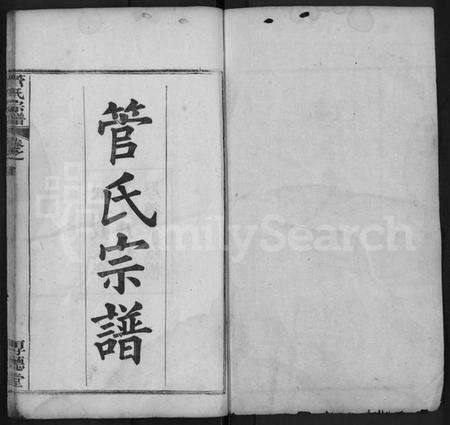 管氏宗譜
管氏宗譜
卷之
厚德堂
FamilySearch